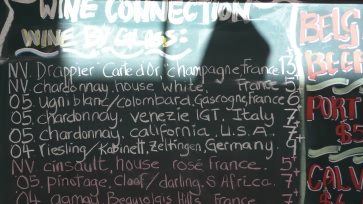 WINE CONNECTION
WINE BY GLASS:
NV. Drappier Carte d'Or, champagne, France 13
NV chardonnay, house white, France 5
05 ugni blanc/colombard, Gascogne, France 6
05. chardonnay. venezie IGT. Italy 7
05 chardonnay, california, U.S.A. 7+
04 riesling/kabinett, Zeltingen, Germany 9
NV cinsault, house rosé France. 5+
05. pinotage, cloof/darling. S Africa. 7+
04 gamay Beaujolais Hills France 7
BELG
BEER
PORT
$
CALV
$